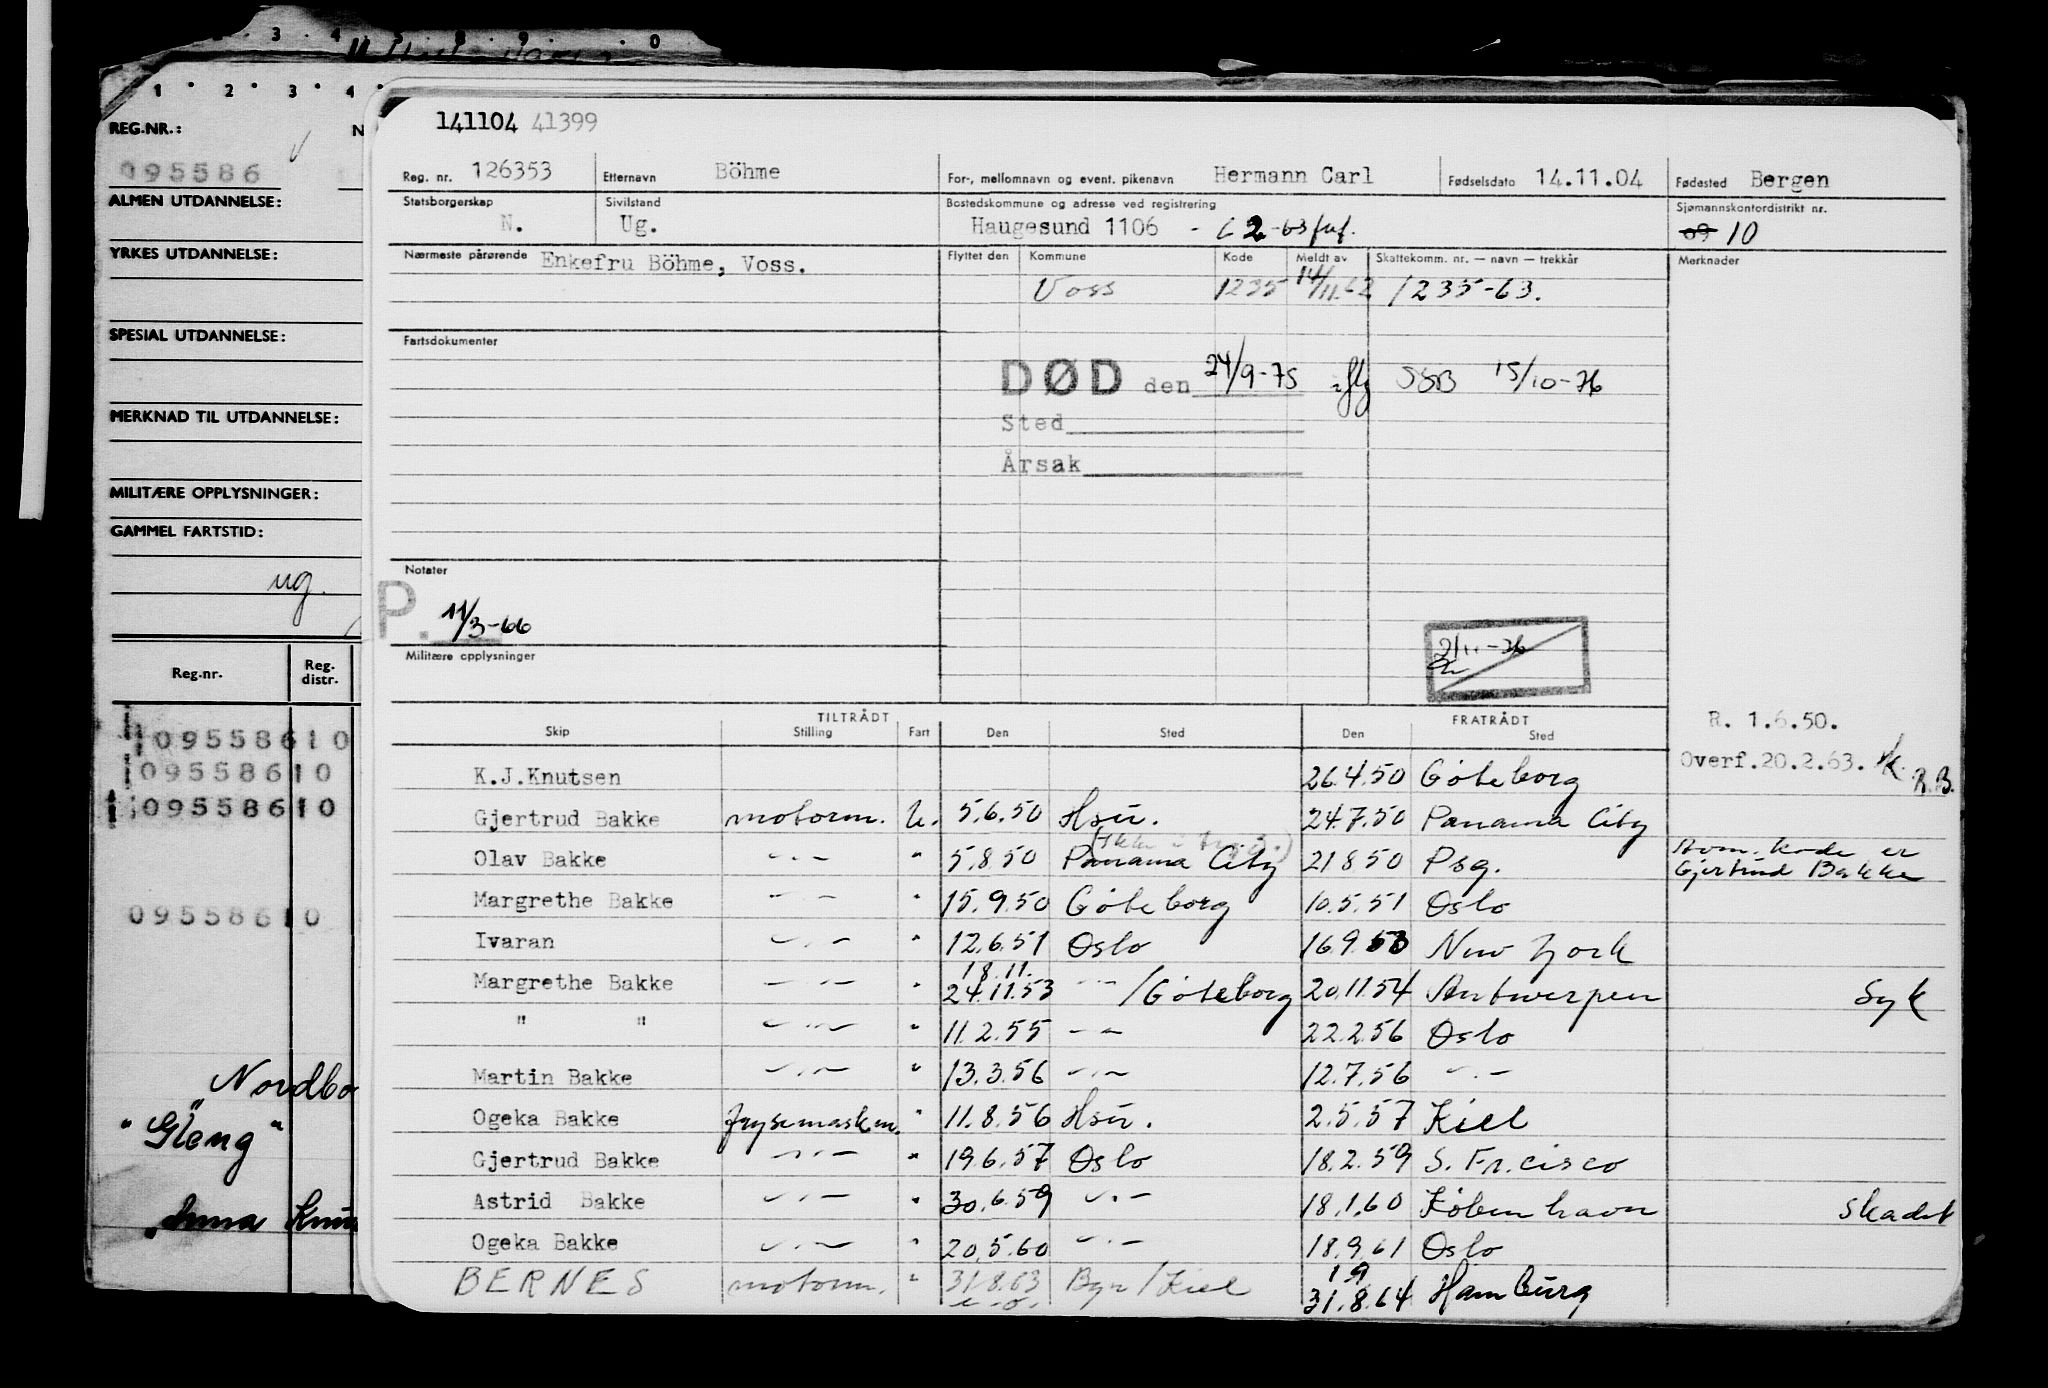 3 4 5 8 9 0
1 2 3 4
REG.NR.:
095586
ALMEN UTDANNELSE:
YRKES UTDANNELSE:
SPESIAL UTDANNELSE:
MERKNAD TIL UTDANNELSE:
MILITÆRE OPPLYSNINGER:
GAMMEL FARTSTID:
ug.
Reg.nr. Reg. distr.
09558610
09558610
09558610
09558610
"Nordbo
"Gleng"
"Anna Knu
141104 41399
Reg. nr. 126353 Etternavn Böhme For-, mellomnavn og event. pikenavn Hermann Carl Fødselsdato 14.11.04 Fødested Bergen
Statsborgerskap N. Sivilstand Ug. Bostedskommune og adresse ved registrering Haugesund 1106 Sjømannskontordistrikt nr. 09 10
Nærmeste pårørende Enkefru Böhme, Voss. Flyttet den Kommune Kode Meldt av Skattekomm. nr. — navn — trekkår Merknader
Voss 1235 14/11.62 1235-63.
Fartsdokumenter
DØD den 24/9-75 SSB 15/10-76
Sted
Årsak
Notater
P. 11/3-66
Militære opplysninger
2/11-76
TILTRÅDT FRATRÅDT
Skip Stilling Fart Den Sted Den Sted
R. 1.6.50.
Overf.20.2.63. R.B.
K.J.Knutsen 26.4.50 Göteborg
Gjertrud Bakke motorm. U. 5.6.50 Hsu. 24.7.50 Panama City
Olav Bakke -"- " 5.8.50 Panama City 21850 Psg. kode er
Gjertrud Bakke
Margrethe Bakke -"- " 15.9.50 Göteborg 10.5.51 Oslo
Ivaran -"- " 12.6.51 Oslo 16.9.53 New York
18.11.
Margrethe Bakke -"- " 24.11.53 -"- /Göteborg 20.11.54 Antwerpen Syk
" " -"- " 11.2.55 -"- 22.2.56 Oslo
Martin Bakke -"- " 13.3.56 -"- 12.7.56 -"-
Ogeka Bakke frysemaskm. " 11.8.56 Hsu. 2.5.57 Kiel
Gjertrud Bakke -"- " 19.6.57 Oslo 18.2.59 S. Fr.cisco
Astrid Bakke -"- " 30.6.59 -"- 18.1.60 København skadet
Ogeka Bakke -"- " 20.5.60 -"- 18.9.61 Oslo
BERNES motorm. " 31.8.63 Bgn/Kiel 31.8.64 Hamburg